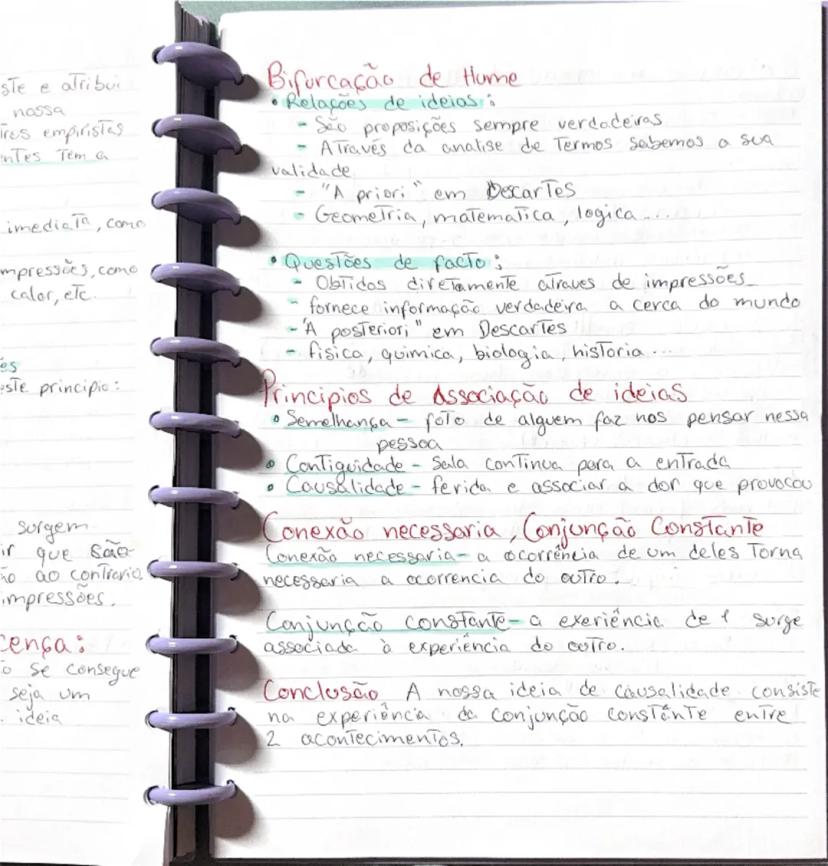 ste e atribui
nossa
tros empiristas
ntes Tem a
imediata, como
mpressões, como
calor, etc.
es
este principio:
surgem
ir que são
ão ao contrario,
impressões.
cença:
o se consegue
seja um
ideia
Bifurcação de Hume
• Relações de ideias:
- São proposições sempre verdadeiras
- Através da analise de Termos sabemos a sua
validade
- "A priori" em Descartes
- Geometria, matematica, logica...
• Questões de facto:
- Obtidos diretamente atraves de impressões
- fornece informação verdadeira a cerca do mundo
- "A posteriori" em Descartes
- fisica, quimica, biologia, historia...
Principios de Associação de ideias
• Semelhança - foto de alguem faz nos pensar nessa
pessoa
• Contiguidade - Sala continua para a entrada
• Causalidade - ferida e associar a dor que provocou
Conexão necessaria, Conjunção Constante
Conexão necessaria - a ocorrência de um deles torna
necessaria a ocorrencia do outro.
Conjunção constante - a exeriência de 1 surge
associada à experiência do outro.
Conclusão A nossa ideia de causalidade consiste
na experiência da conjunção constante entre
2 acontecimentos.